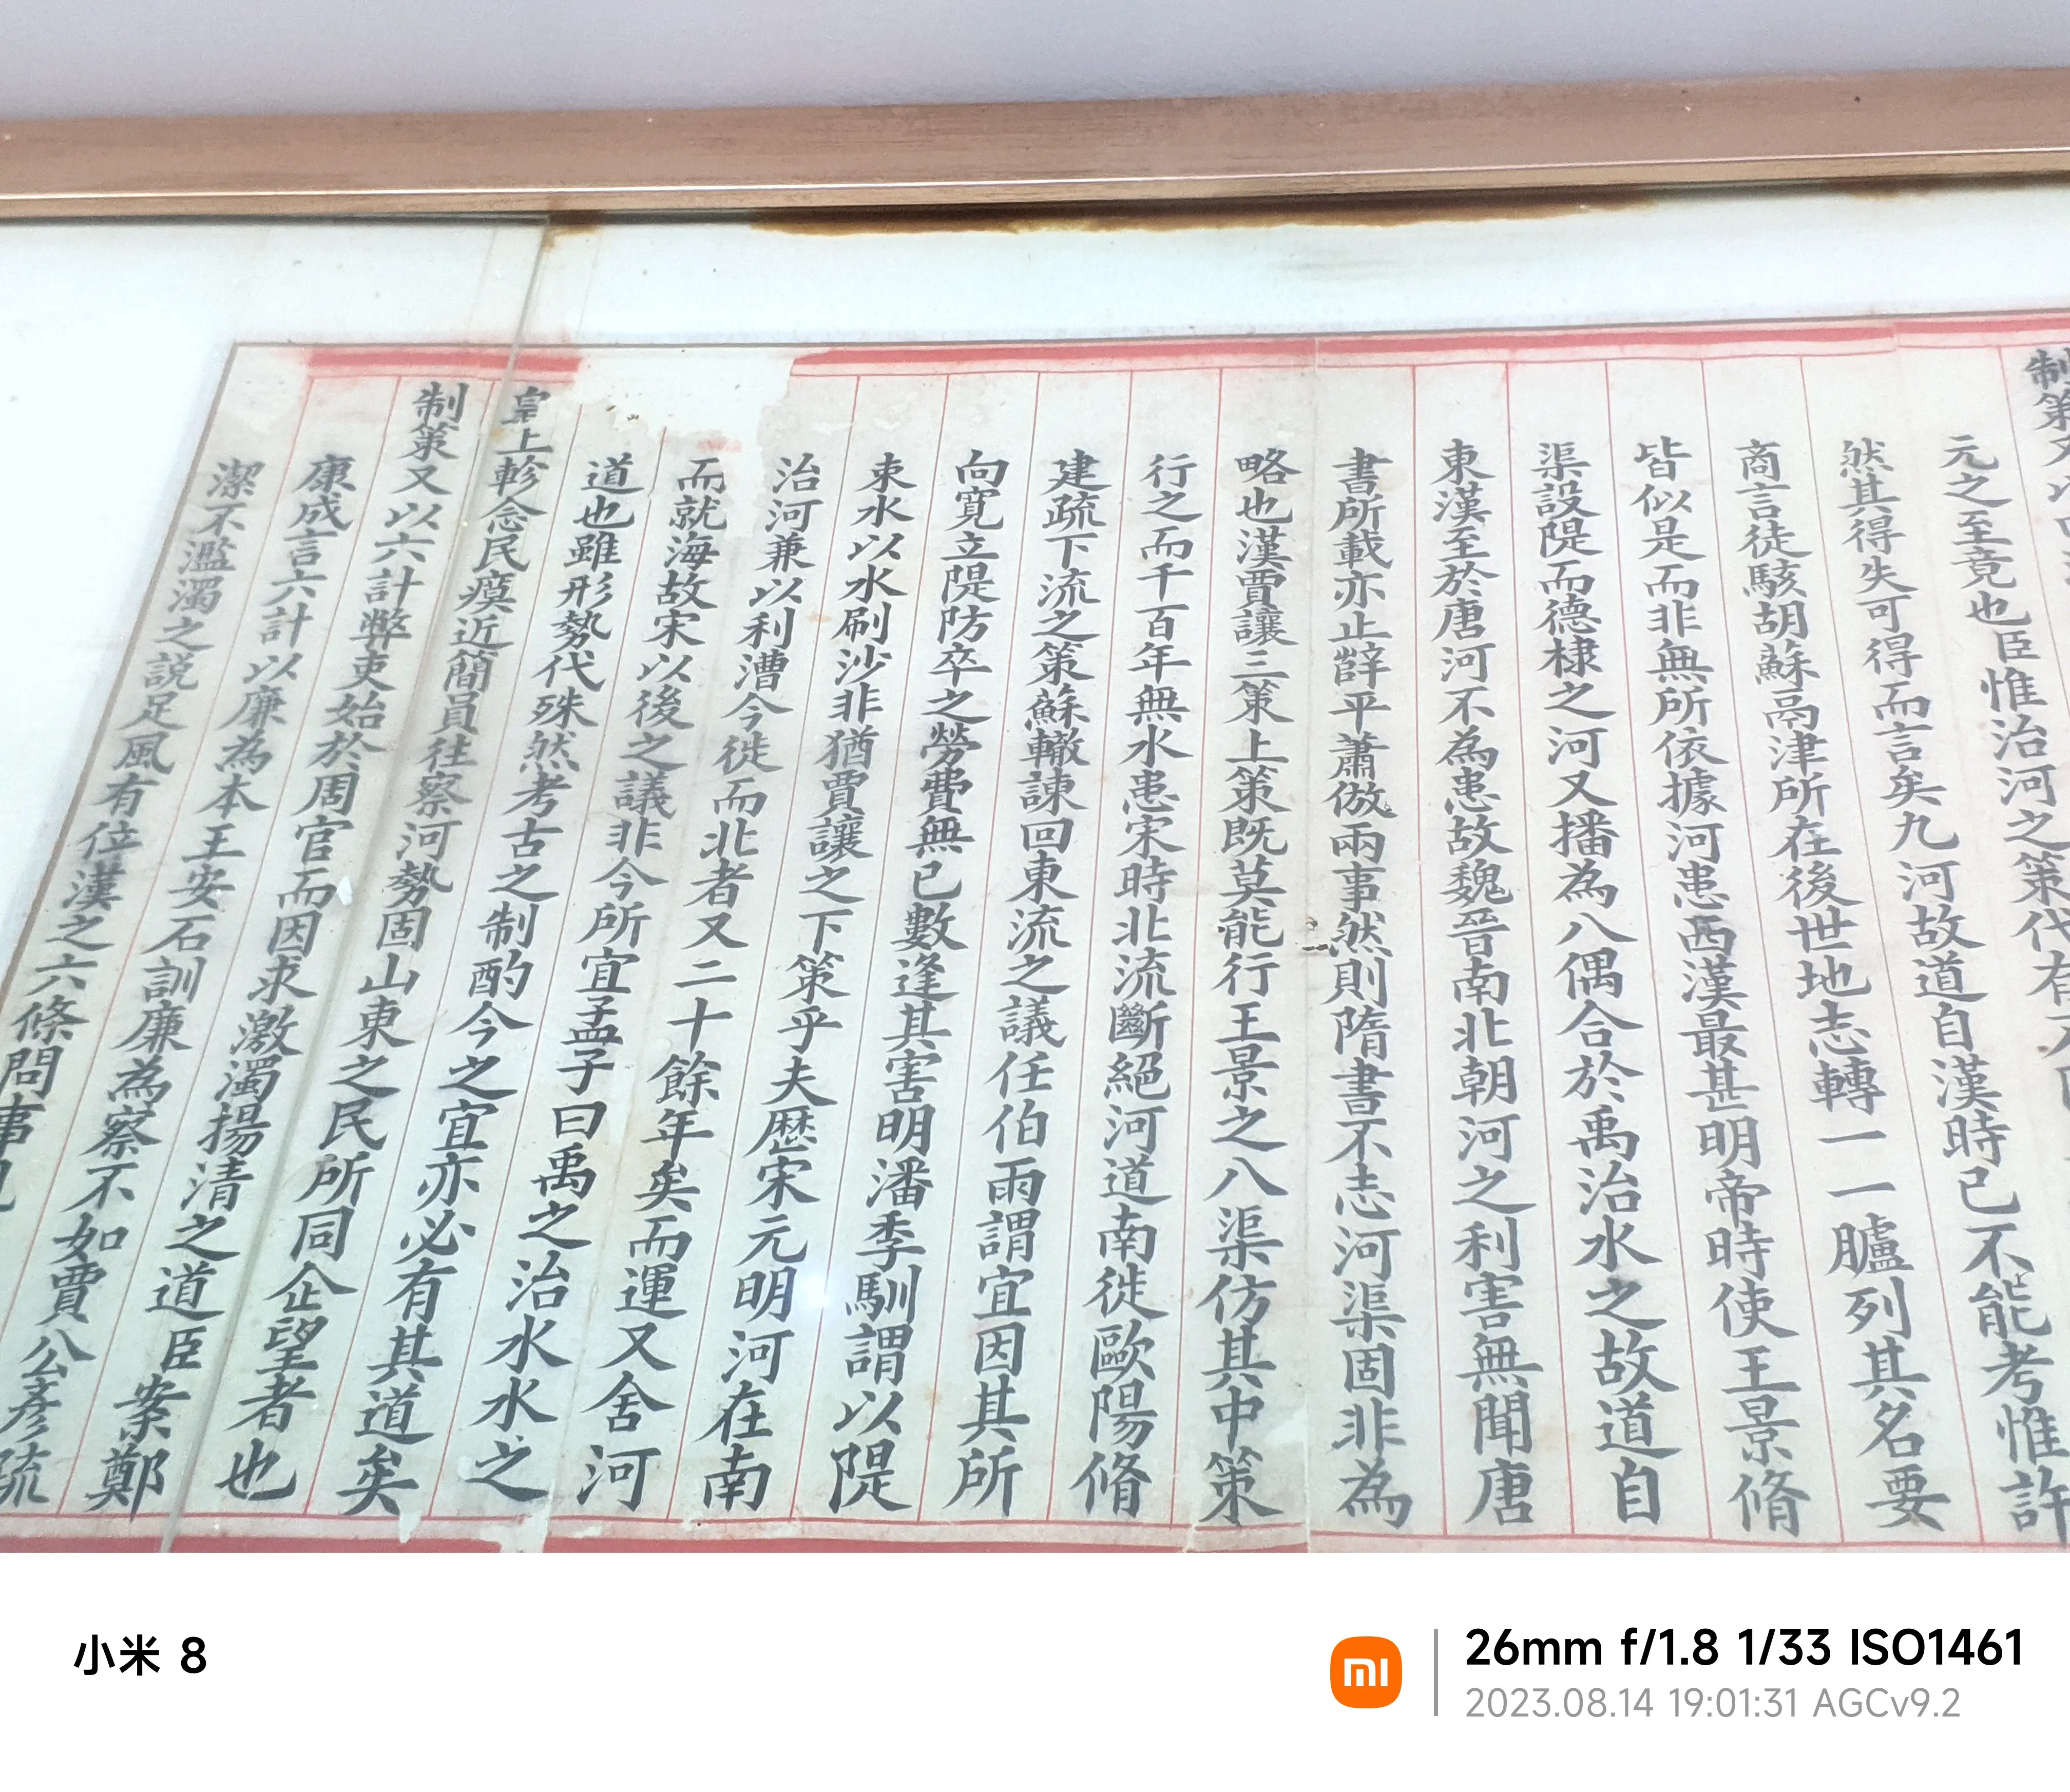 制策又以
元之至竟也臣惟治河之策代有
然其得失可得而言矣九河故道自漢時已不能考惟許
商言徒駭胡蘇鬲津所在後世地志轉一一臚列其名要
皆似是而非無所依據河患西漢最甚明帝時使王景脩
渠設隄而德棣之河又播為八偶合於禹治水之故道自
東漢至於唐河不為患故魏晉南北朝河之利害無聞唐
書所載亦止薛平蕭倣兩事然則隋書不志河渠固非為
略也漢賈讓三策上策既莫能行王景之八渠仿其中策
行之而千百年無水患宋時北流斷絕河道南徙歐陽脩
建疏下流之策蘇轍諫回東流之議任伯雨謂宜因其所
向寬立隄防卒之勞費無已數逢其害明潘季馴謂以隄
束水以水刷沙非猶賈讓之下策乎夫歷宋元明河在南
治河兼以利漕今徙而北者又二十餘年矣而運又舍河
而就海故宋以後之議非今所宜孟子曰禹之治水水之
道也雖形勢代殊然考古之制酌今之宜亦必有其道矣
皇上軫念民瘼近簡員往察河勢固山東之民所同企望者也
制策又以六計弊吏始於周官而因求激濁揚清之道臣案鄭
康成言六計以廉為本王安石訓廉為察不如賈公彥疏
潔不濫濁之說足風有位漢之六條問事
小米 8
26mm f/1.8 1/33 ISO1461
2023.08.14 19:01:31 AGCv9.2